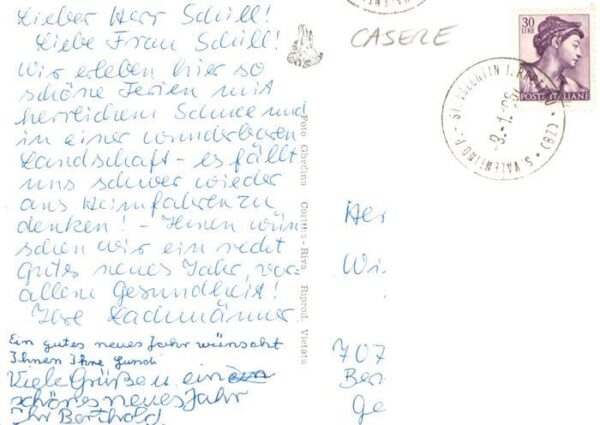 Lieber Herr Schill!
Liebe Frau Schill!
Wir erleben hier so
schöne Ferien mit
herrlichem Schnee und
in einer wunderbaren
Landschaft - es fällt
uns schwer wieder
ans Heimfahren zu
denken! - Ihnen wün
schen wir ein recht
gutes neues Jahr, vor
allem Gesundheit!
Ihre
Ein gutes neues Jahr wünscht
Ihnen Ihre
Viele Grüße u. ein
schönes neues Jahr
Ihr Berthold
Foto Ghedina Cortina - Riva Riprod. Vietata
CASERE
30
LIRE
POSTE ITALIANE
S. VALENTINO
Her
Wi.
707
Ber
Ge